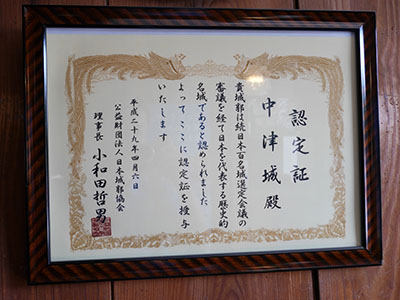 認定証
中津城殿
貴城郭は続日本百名城選定会議の
審議を経て日本を代表する歴史的
名城であると認められました
よってここに認定証を授与
いたします
平成二十九年四月六日
公益財団法人日本城郭協会
理事長 小和田哲男